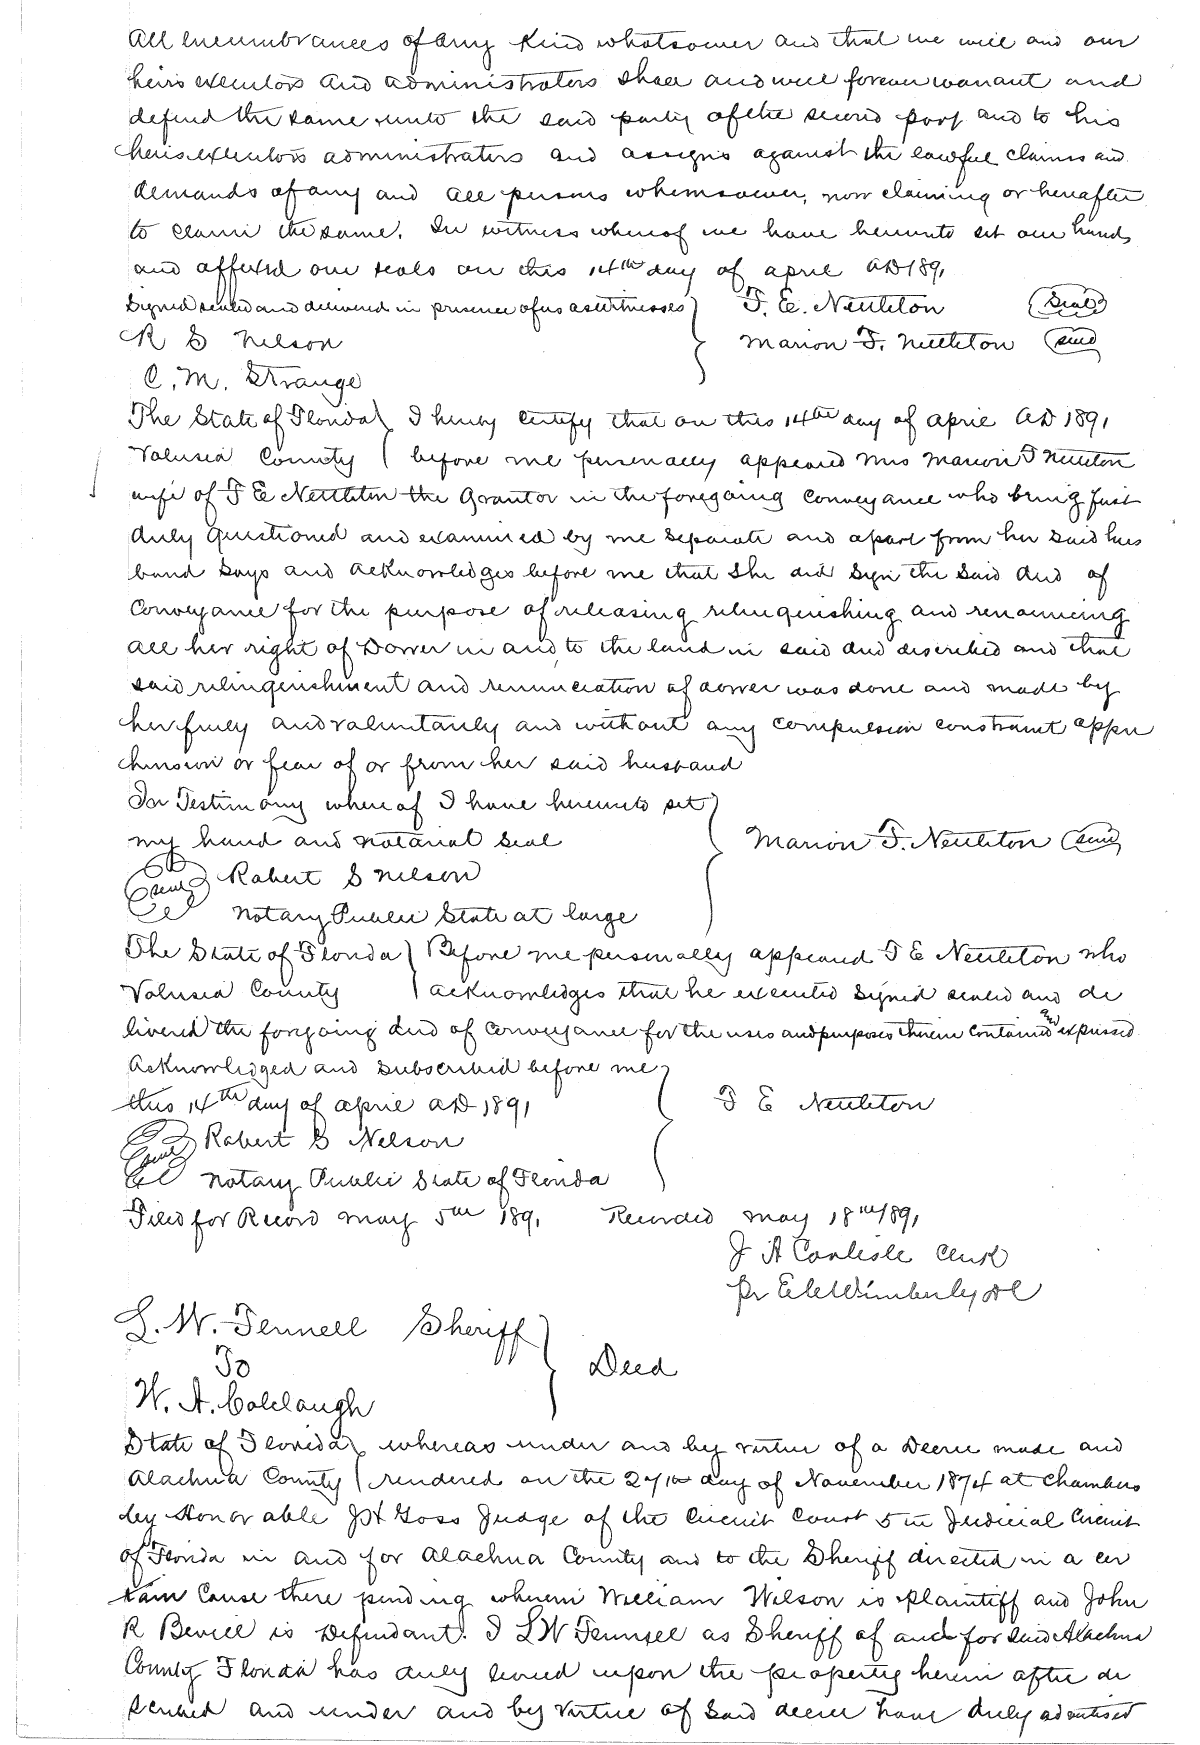 All incumbrances of any kind whatsoever and that we will and our
heirs executors and administrators shall and will forever warrant and
defend the same unto the said party of the second part and to his
heirs executors administrators and assigns against the lawful claims and
demands of any and all persons whomsoever, now claiming or hereafter
to claim the same. In witness whereof we have hereunto set our hands
and affixed our seals on this 14th day of April AD 1891
Signed sealed and delivered in presence of us as witnesses } T. E. Nettleton (Seal)
R S Nelson Marion F. Nettleton (Seal)
C. M. Strange
The State of Florida } I hereby certify that on this 14th day of April AD 1891
Volusia County } before me personally appeared Mrs Marion F Nettleton
wife of T E Nettleton the Grantor in the foregoing conveyance who being first
duly questioned and examined by me separate and apart from her said hus
band says and acknowledges before me that she did sign the said deed of
Conveyance for the purpose of releasing relinquishing and renouncing
all her right of Dower in and to the land in said deed described and that
said relinquishment and renunciation of dower was done and made by
her freely and voluntarily and without any compulsion constraint appre
hension or fear of or from her said husband
In Testimony whereof I have hereunto set }
my hand and notarial seal } Marion F. Nettleton (Seal)
(Seal) Robert S Nelson
Notary Public State at large
The State of Florida } Before me personally appeared T E Nettleton who
Volusia County } acknowledges that he executed signed sealed and de
livered the foregoing deed of conveyance for the uses and purposes therein contained and expressed
Acknowledged and subscribed before me }
this 14th day of April AD 1891 } T E Nettleton
(Seal) Robert S Nelson
Notary Public State of Florida
Filed for Record May 5th 1891 Recorded May 18th 1891
J A Carlisle Clerk
pr Wimberly DC
L. W. Fennell Sheriff }
To } Deed
W. A. Colclough
State of Florida } whereas under and by virtue of a Decree made and
Alachua County } rendered on the 27th day of November 1874 at Chambers
by Honorable J H Goss Judge of the Circuit Court 5th Judicial Circuit
of Florida in and for Alachua County and to the Sheriff directed in a cer
tain Cause there pending wherein William Wilson is Plaintiff and John
R Bevill is Defendant. I L W Fennell as Sheriff of and for said Alachua
County Florida has duly levied upon the property herein after de
scribed and under and by virtue of said decree have duly advertised